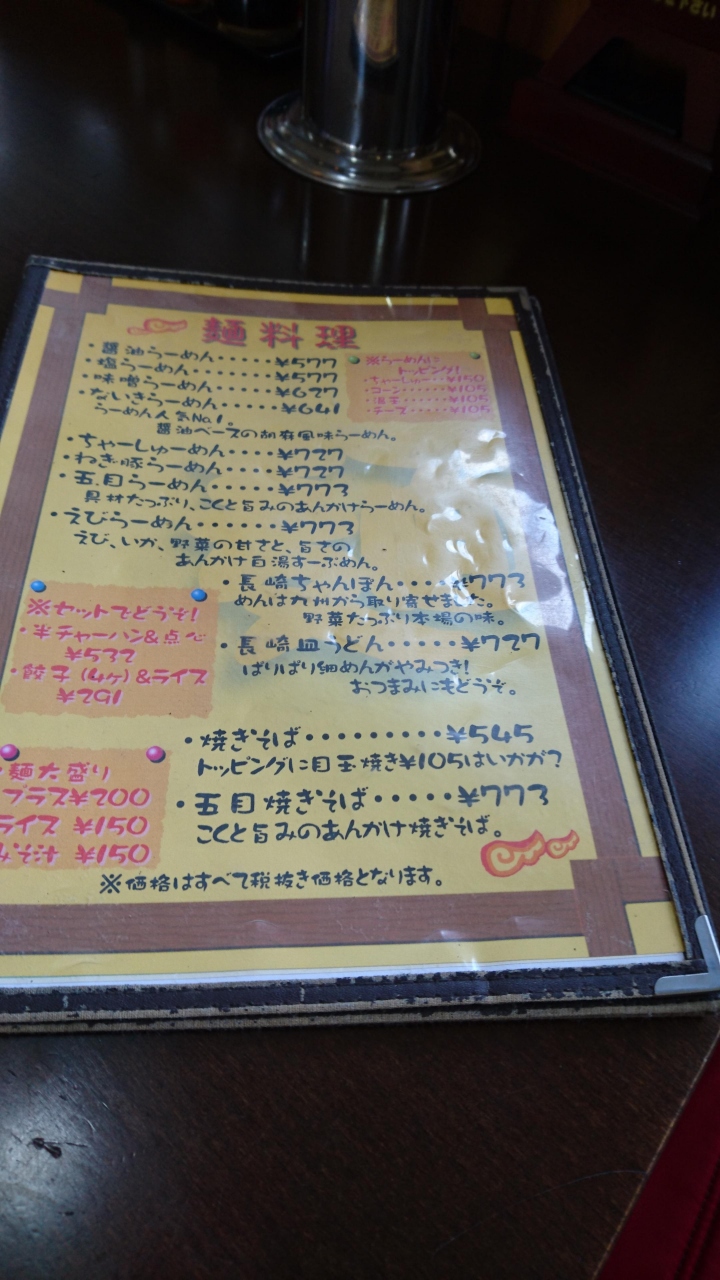 麺料理
・醤油らーめん・・・・・¥577
・塩らーめん・・・・・・¥577
・味噌らーめん・・・・・¥627
・ないきらーめん・・・・¥641
らーめん人気No.1
醤油ベースの胡麻風味らーめん。
※らーめんに
トッピング!
・ちゃーしゅー・・¥150
・コーン・・・・・¥105
・温玉・・・・・・¥105
・チーズ・・・・・¥105
・ちゃーしゅーめん・・・・¥727
・ねぎ豚らーめん・・・・・¥727
・五目らーめん・・・・・・¥773
具材たっぷり、こくと旨みのあんかけらーめん。
・えびらーめん・・・・・・¥773
えび、いか、野菜の甘さと、旨さの
あんかけ白湯すーぷめん。
・長崎ちゃんぽん・・・・¥773
めんは九州から取り寄せました。
野菜たっぷり本場の味。
・長崎皿うどん・・・・・¥727
ぱりぱり細めんがやみつき!
おつまみにもどうぞ。
※セットでどうぞ!
・半チャーハン&点心
¥532
・餃子(4ヶ)&ライス
¥291
・焼きそば・・・・・・・・・¥545
トッピングに目玉焼き¥105はいかが?
・五目焼きそば・・・・・¥773
こくと旨みのあんかけ焼きそば。
・麺大盛り
プラス¥200
ライス ¥150
みそ汁 ¥150
※価格はすべて税抜き価格となります。